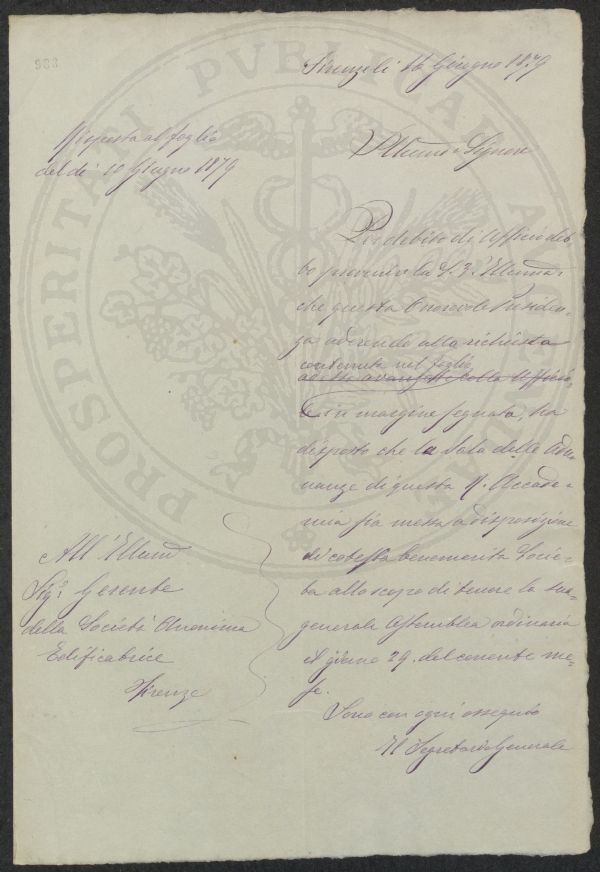 983
Firenze li 16 Giugno 1879
Risposta al foglio
del dì 10 Giugno 1879
Illmo Signore
Per debito di Ufficio deb-
bo prevenire la S. V. Illma
che questa Onorevole Presiden-
za aderendo alla richiesta
contenuta nel foglio
colla Ufficio
in margine segnata, ha
disposto che la Sala delle Adu-
nanze di questa R. Accade-
mia sia messa a disposizione
di cotesta benemerita Socie-
tà allo scopo di tenere la sua
generale Assemblea ordinaria
il giorno 29. del corrente me-
se.
Sono con ogni ossequio
Il Segretario Generale
All' Illmo
Sigr Gerente
della Società Anonima
Edificatrice
Firenze
PROSPERITATI PUBLICAE AUGENDAE